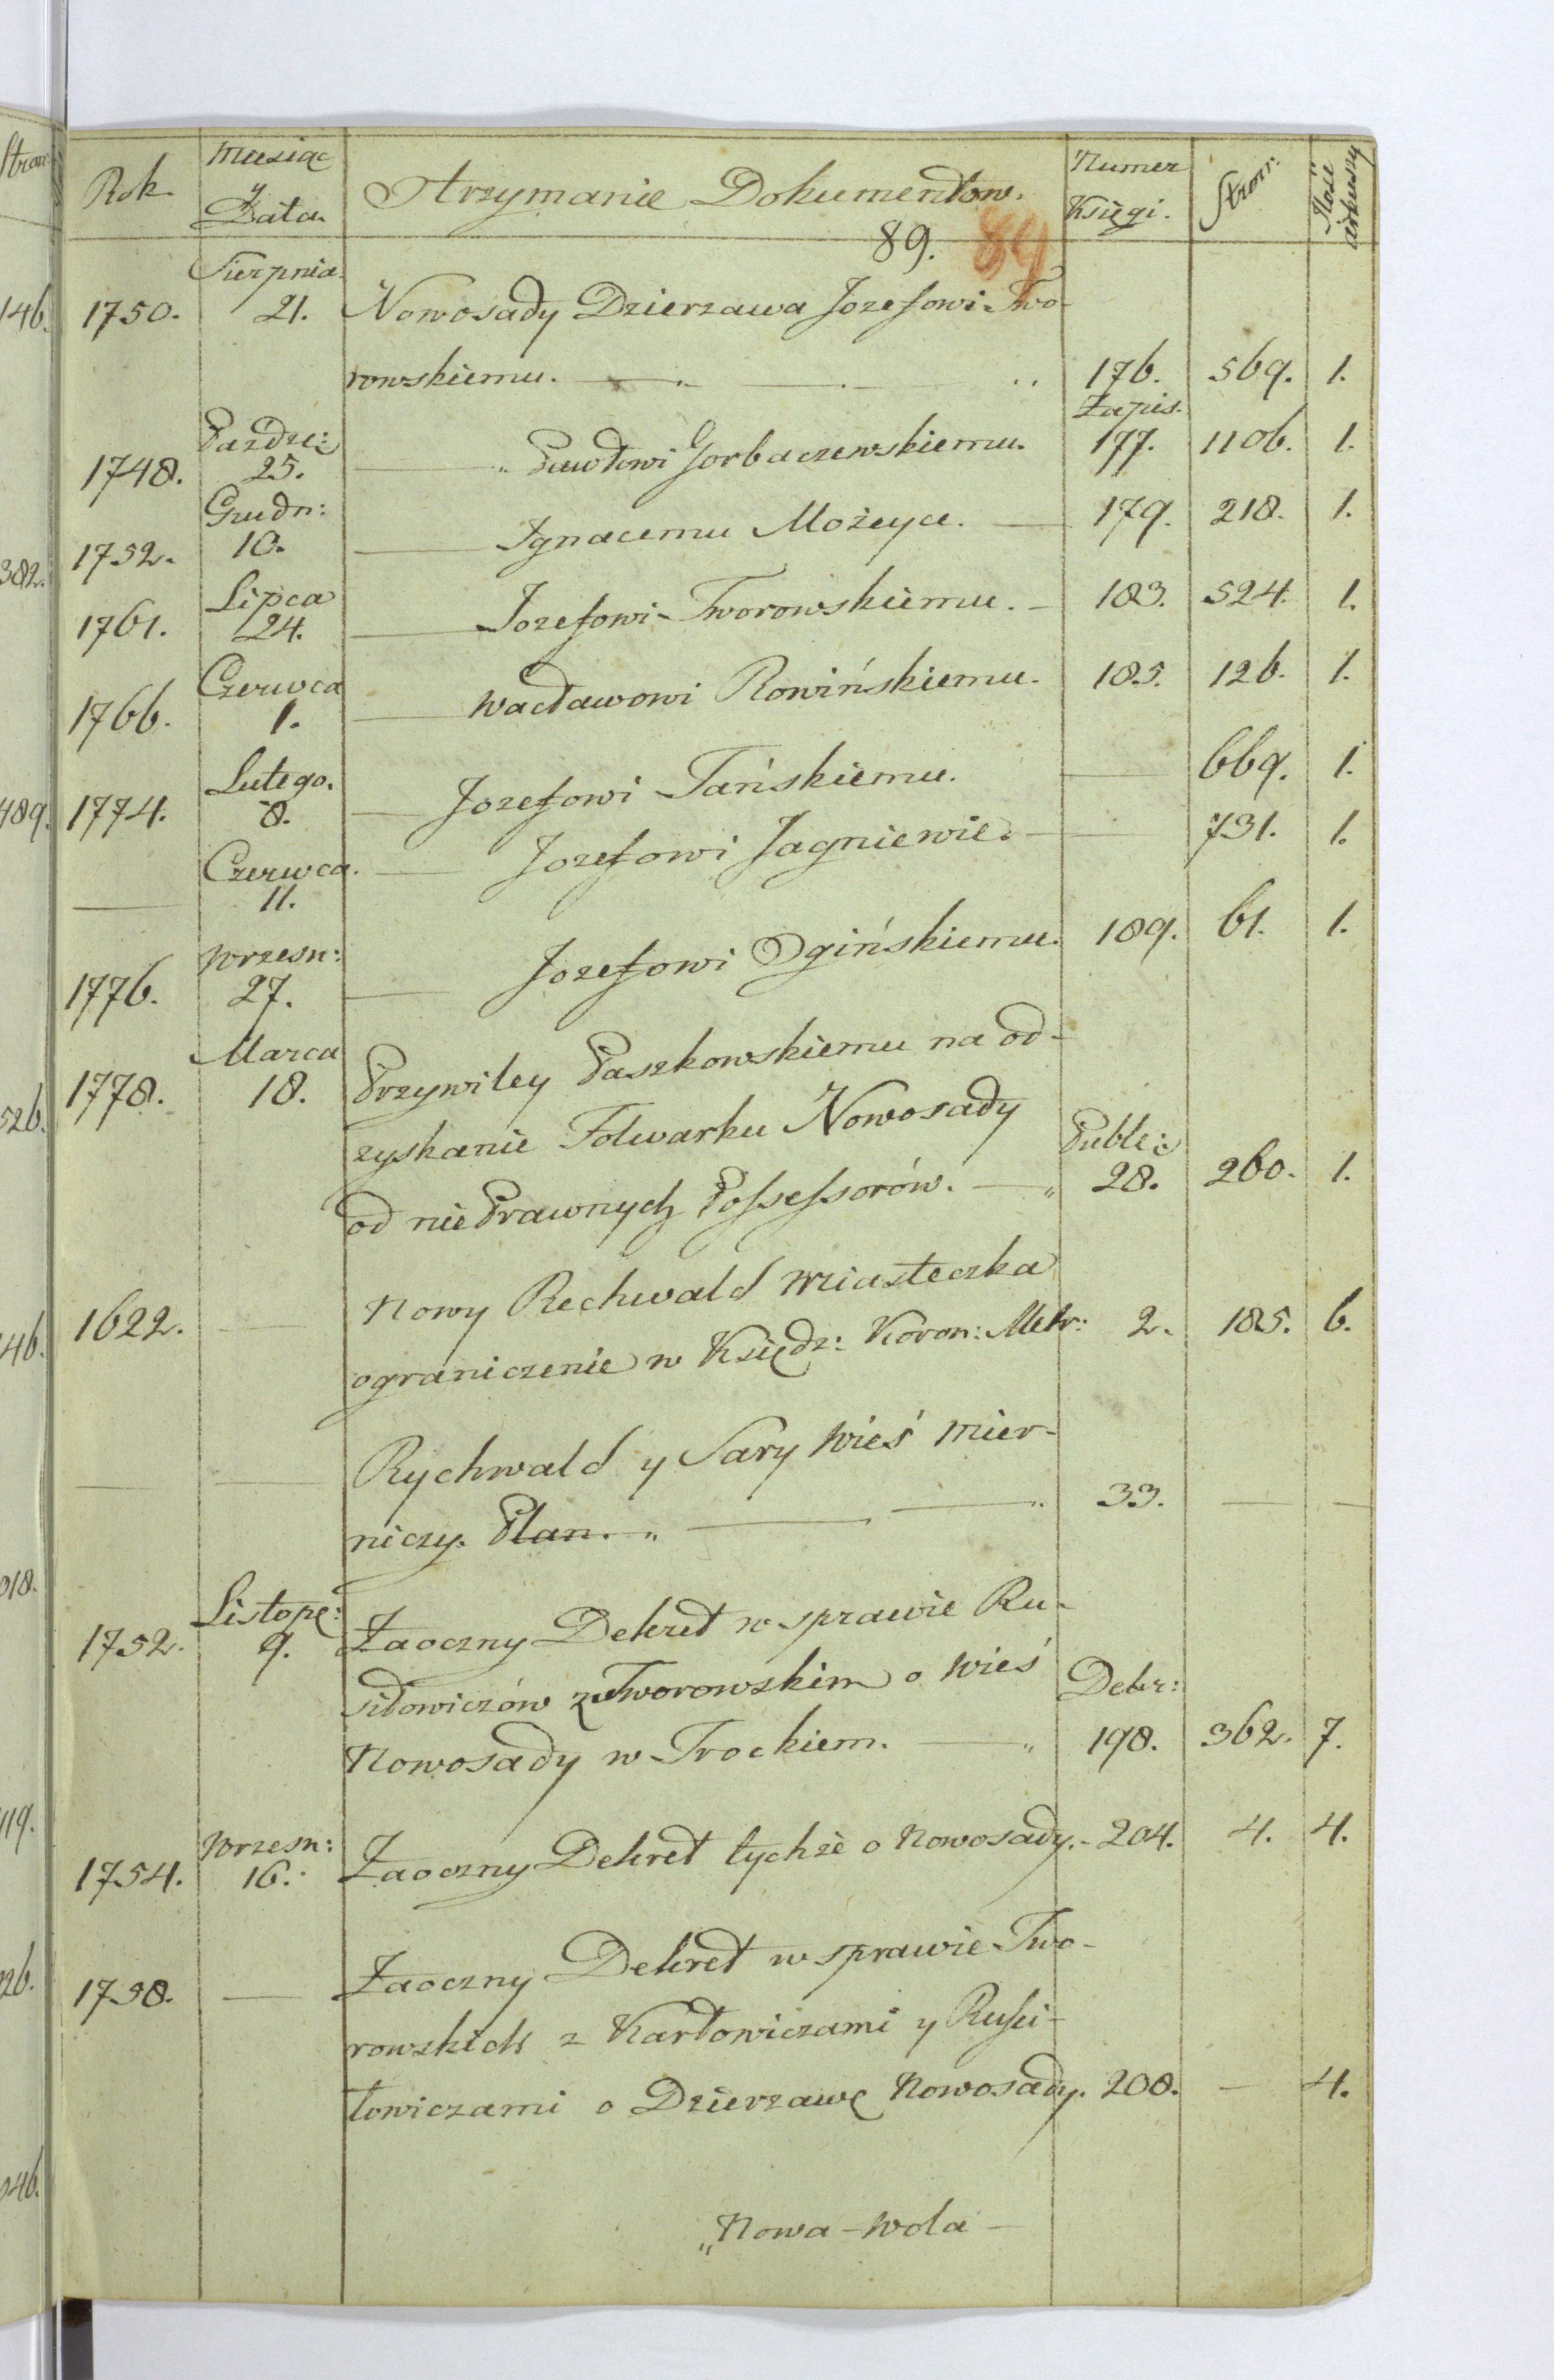 Rok. Miesiąc y Data. Trzymanie Dokumentow. Numer Księgi. Stron: Ilość arkuszy
89. 89
1750. Sierpnia 21. Nowosady Dzierzawa Jozefowi Two-
rowskiemu. 176. 569. 1.
Zapis.
1748. Pazdze: 25. Pawłowi Gorbaczewskiemu. 177. 1106. 1.
1752. Grudn: 10. Ignacemu Możeyce. 179. 218. 1.
1761. Lipca 24. Jozefowi Tworowskiemu. 183. 524. 1.
1766. Czerwca 1. Wacławowi Rowińskiemu. 185. 126. 1.
1774. Lutego. 8. Jozefowi Tańskiemu. — 669. 1.
— Czerwca. 11. Jozefowi Jagniewic. — 731. 1.
1776. Wrzesn: 27. Jozefowi Ogińskiemu. 189. 61. 1.
1778. Marca 18. Przywiley Paszkowskiemu na od-
zyskanie Folwarku Nowosady
od nie Prawnych Possessorów. Publ: 28. 260. 1.
1622. — Nowy Rechwald Miasteczka
ograniczenie w Księdz: Koron: Metr: 2. 185. 6.
— — Rychwald y Sary Wieś Mier-
niczy Plan. 33. — —
1752. Listop: 9. Zaoczny Dekret w sprawie Ru-
siłowiczów z Tworowskim o Wieś
Nowosady w Trockiem. Dekr: 198. 362. 7.
1754. Wrzesn: 16. Zaoczny Dekret tychże o Nowosady. 204. 4. 4.
1758. — Zaoczny Dekret w sprawie Two-
rowskich z Karłowiczami y Rusi-
łowiczami o Dzierzawę Nowosady. 208. — 4.
„Nowa-Wola-